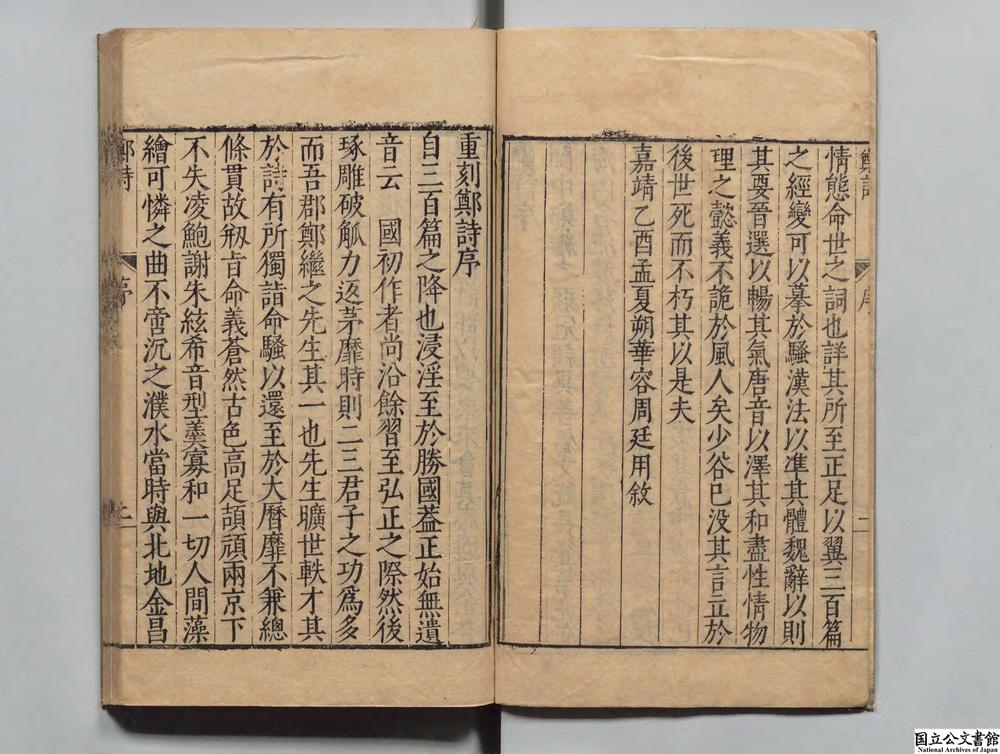 鄭詩 序 二
情態命世之詞也詳其所至正足以翼三百篇
之經變可以摹於騷漢法以準其體魏辭以則
其要晉選以暢其氣唐音以澤其和盡性情物
理之懿義不詭於風人矣少谷已没其言立於
後世死而不朽其以是夫
嘉靖乙酉孟夏朔華容周廷用敘
重刻鄭詩序
自三百篇之降也浸淫至於勝國蓋正始無遺
音云 國初作者尚沿餘習至弘正之際然後
琢雕破觚力返茅靡時則二三君子之功為多
而吾郡鄭繼之先生其一也先生曠世軼才其
於詩有所獨詣命騷以還至於大曆靡不兼總
條貫故剏㫖命義蒼然古色高足頡頏兩京下
不失凌鮑謝朱絃希音型羹寡和一切人間藻
繪可憐之曲不啻沉之濮水當時與北地金昌
鄭詩 序
国立公文書館
National Archives of Japan